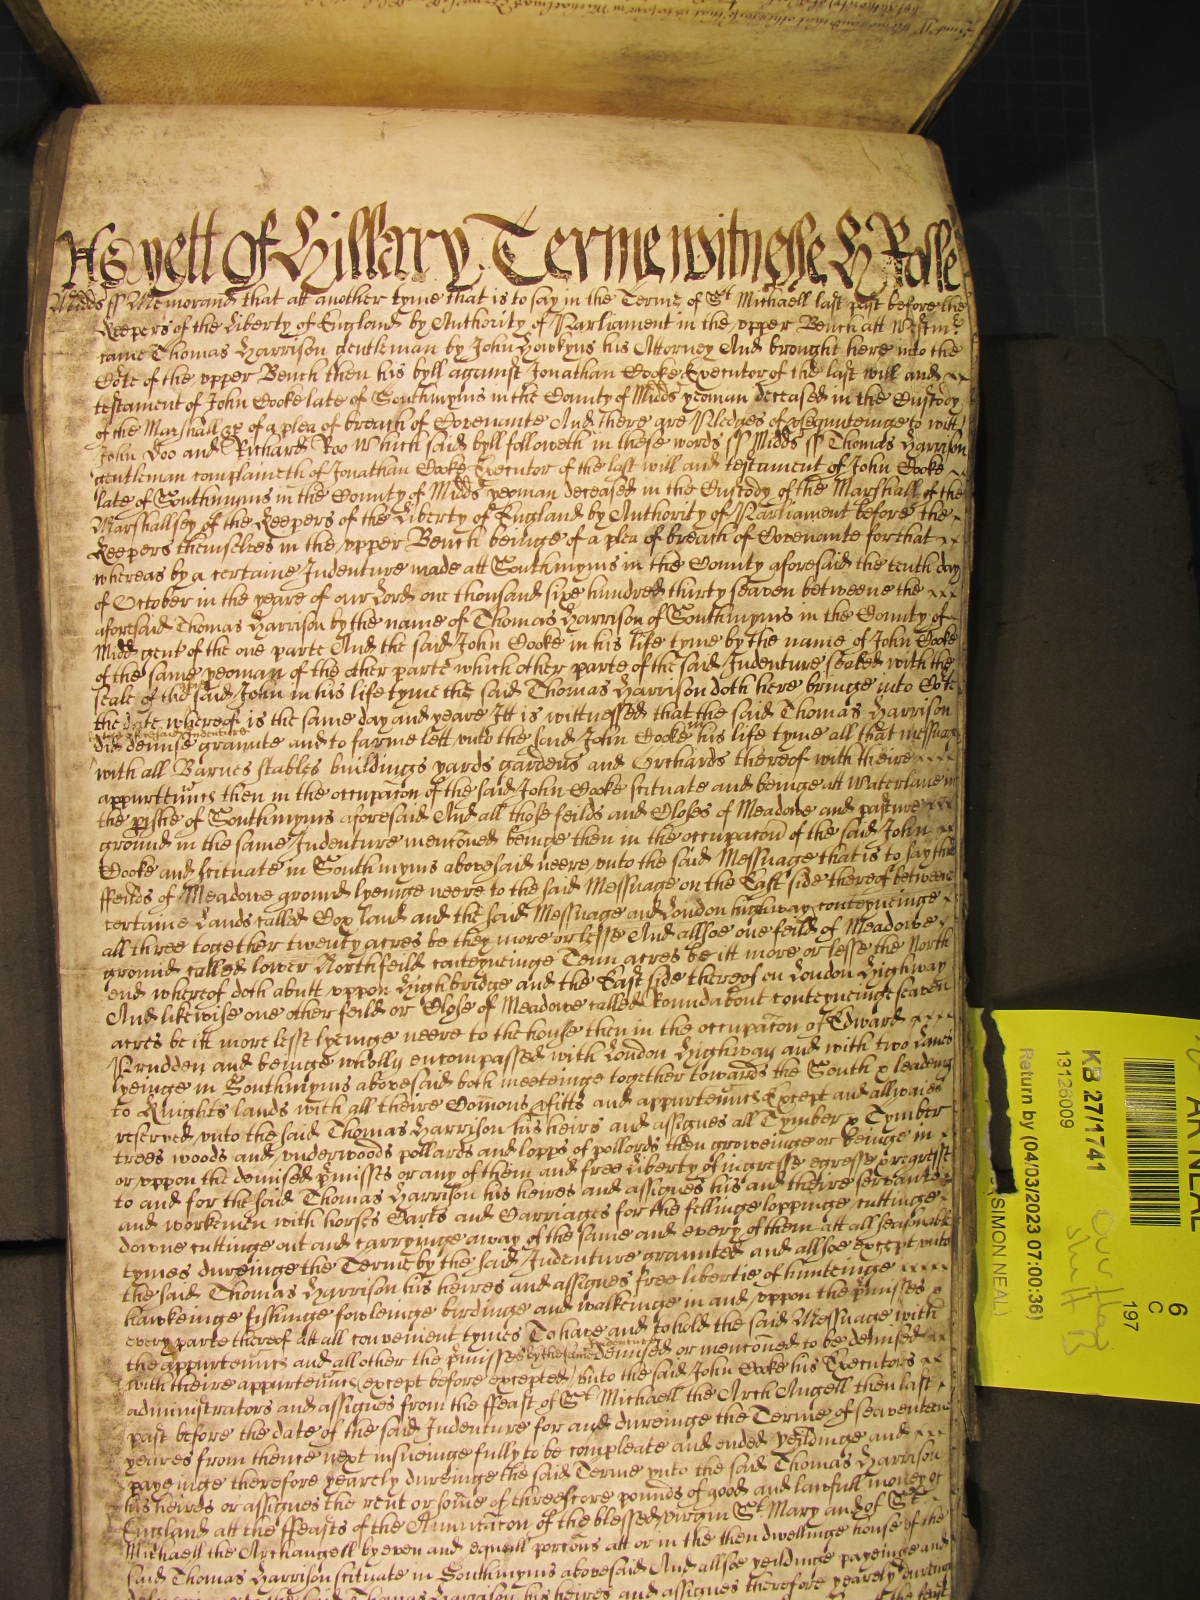 As yett of Hillary Terme witnesse H Rolle
Midds ss Memorand that att another tyme that is to say in the Terme of St Michaell last past before the
Keepers of the Liberty of England by Authority of Parliament in the upper Bench att Westm
came Thomas Harrison gentleman by John Howkyns his Attorney And brought here into the
Co'te of the upper Bench then his byll against Jonathan Cooke Executor of the last will and
testament of John Cooke late of Southmyms in the County of Midds yeoman deceased in the Custody
of the Marshall &c of a plea of breach of Covenante And there are Pledges of psequuteinge to witt
John Doo and Richard Roo Which said byll followeth in these words ss Midds ss Thomas Harrison
gentleman complaineth of Jonathan Cooke Executor of the last will and testament of John Cooke
late of Southmyms in the County of Midds yeoman deceased in the Custody of the Marshall of the
Marshallsey of the Keepers of the Liberty of England by Authority of Parliament before the
Keepers themselves in the upper Bench beinge of a plea of breach of Covenante for that
whereas by a certaine Indenture made att Southmyms in the County aforesaid the tenth day
of October in the yeare of our Lord one thousand sixe hundred thirty seaven betweene the
aforesaid Thomas Harrison by the name of Thomas Harrison of Southmyms in the County of
Midd gent of the one parte And the said John Cooke in his life tyme by the name of John Cooke
of the same yeoman of the other parte which other parte of the said Indenture sealed with the
seale of the said John in his life tyme the said Thomas Harrison doth here bringe into Co'te
the date whereof is the same day and yeare Itt is wittnessed that the said Thomas Harrison
did demise graunte and to farme lett unto the said John Cooke in his life tyme all that messuage
with all Barnes stables buildings yards gardens and Orchards thereof with theire
appurtenncs then in the occupacon of the said John Cooke scituate and beinge att Waterlane in
the pishe of Southmyms aforesaid And all those feilds and Closes of Meadowe and pasture
ground in the same Indenture menconed beinge then in the occupacon of the said John
Cooke and scituate in Southmyms abovesaid neere unto the said Messuage that is to say three
ffeilds of Meadowe ground lyeinge neere to the said Messuage on the East side thereof betweene
certaine Lands called Cox land and the said Messuage and London highway conteyneinge
all three together twenty acres be they more or lesse And allsoe one feild of Meadowe
ground called lower Northfeild conteyneinge Tenn acres be itt more or lesse the North
end whereof doth abutt uppon Highbridge and the East side thereof on London Highway
And likewise one other feild or Close of Meadowe called Roundabout conteyneinge seaven
acres be itt more lesse lyeinge neere to the house then in the occupacon of Edward
Prudden and beinge wholly encompassed with London Highway and with two Lanes
lyeinge in Southmyms abovesaid both meeteinge together towards the South & leadeing
to Knights lands with all theire Comons pfitts and appurtenncs Except and allwaies
reserved unto the said Thomas Harrison his heirs and assignes all Tymber & Tymber
trees woods and underwoods pollards and lopps of pollords then groweinge or beinge in
or uppon the demised pmisses or any of them and free liberty of ingresse egresse & regresse
to and for the said Thomas Harrison his heires and assignes his and theire servants
and workemen with horses Carts and Carriages for the fellinge loppinge cuttinge
downe cuttinge out and carryinge away of the same and every of them att all seasonable
tymes dureinge the Terme by the said Indenture graunted and allsoe except unto
the said Thomas Harrison his heires and assignes free libertie of hunteinge
hawkeinge fishinge fowleinge birdinge and walkeinge in and uppon the pmisses &
every parte thereof att all convenient tymes To have and to hold the said Messuage with
the appurtenncs and all other the pmisses by the same Indenture demised or menconed to be demised
with theire appurtenncs (except before excepted) unto the said John Cooke his Executors
administrators and assignes from the ffeast of St Michaell the Arch Angell then last
past before the date of the said Indenture for and dureinge the Terme of seaventeene
yeares from thence next insueinge fully to be compleate and ended yeildinge and
payeinge therefore yearely dureinge the said Terme unto the said Thomas Harrison
his heires or assignes the rent or some of threescore pounds of good and lawfull money of
England att the ffeasts of the Annuncacon of the blessed virgin St Mary and of St
Michaell the Archangell by even and equall porcons att or in the then dwellinge house of the
said Thomas Harrison scituate in Southmyms abovesaid And allsoe yeildinge payeinge and
Thomas Harrison his heires and assignes therefore yearely dureinge
KB 27/1741
13126009
Return by (04/03/2023 07:00:36)
(SIMON NEAL)
6
C
197